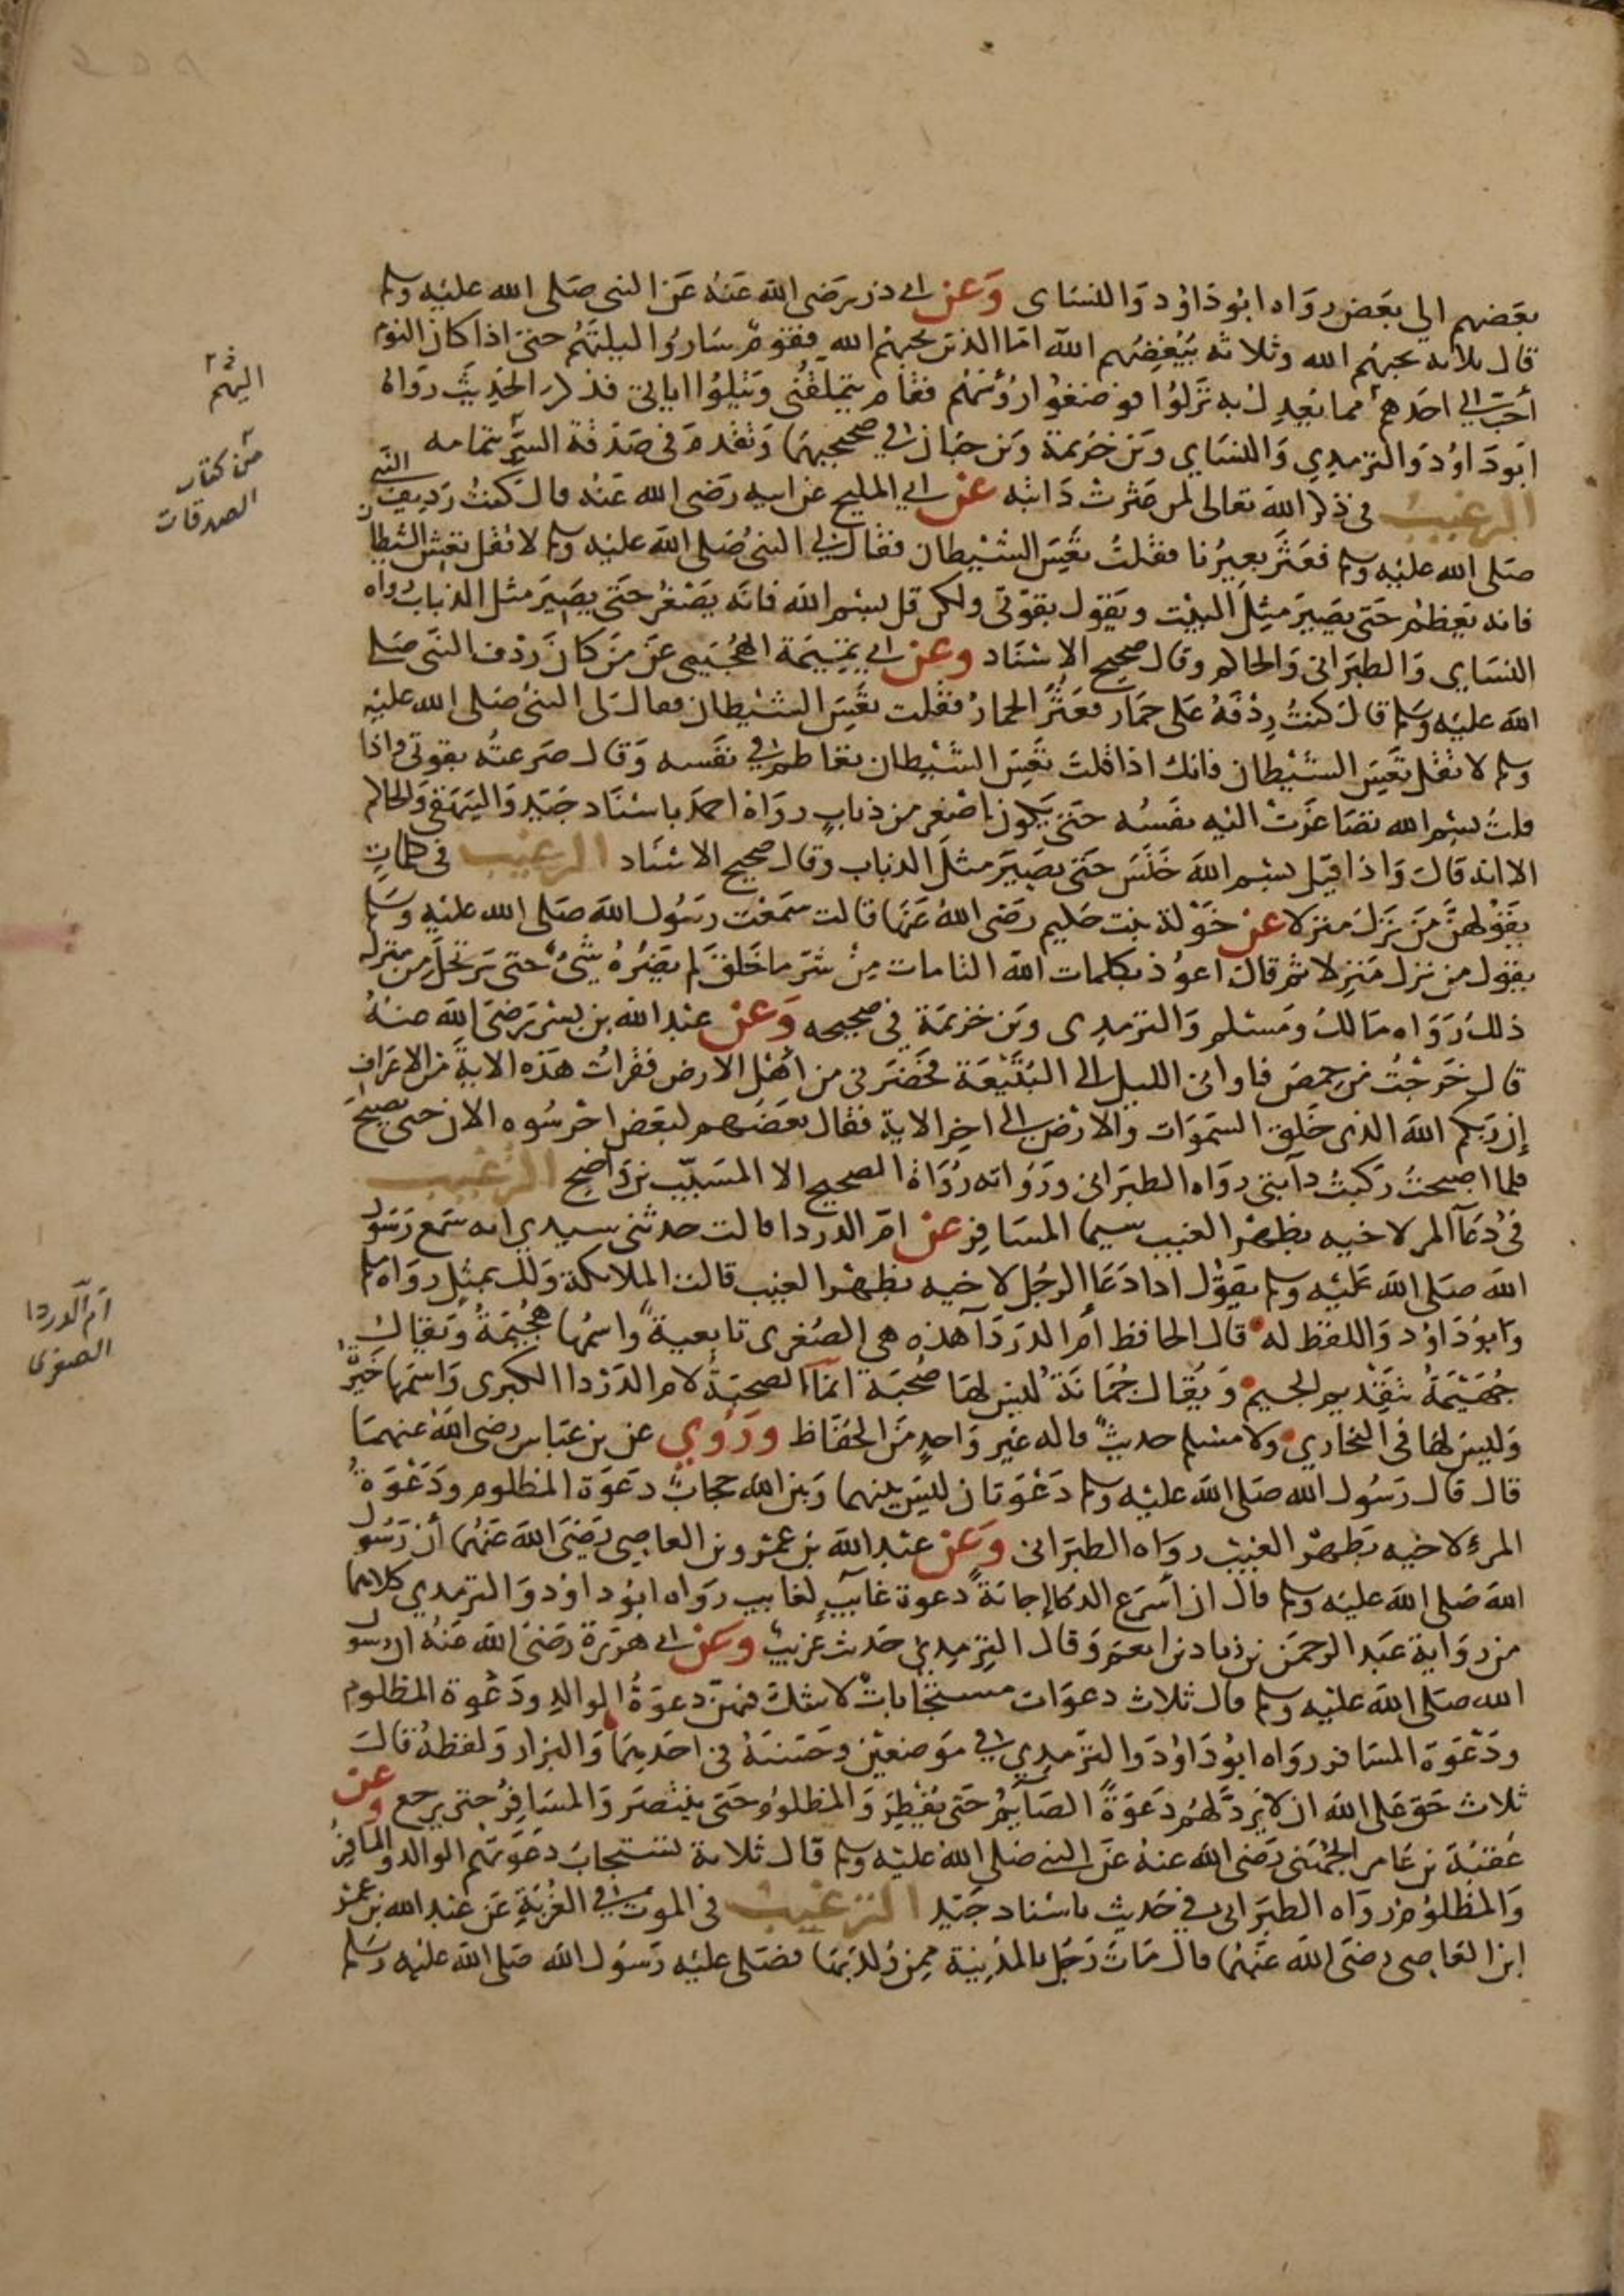 بعضهم الى بعض رواه ابو داود والنساى وعن ابى ذر رضى الله عنه عن النبى صلى الله عليه وسلم
قال ثلاثه يحبهم الله وثلاثه يبغضهم الله اما الذين يحبهم الله فقوم ساروا ليلتهم حتى اذا كان النوم
أحب الى احدهم مما يعدل به نزلوا فوضعوا رؤسهم فقام يتملقنى ويتلوا اياتى فذكر الحديث رواه
ابو داود والترمذي والنساي وبن خزيمة وبن حبان فى صحيحيهما وتقدم فى صدقة السر بتمامه
الترغيب فى ذكر الله تعالى لمن عثرت دابته عن ابى المليح عن ابيه رضى الله عنه قال كنت رديف النبى
صلى الله عليه وسلم فعثر بعيرنا فقلت تعس الشيطان فقال لى النبى صلى الله عليه وسلم لا تقل تعس الشيطان
فانه يعظم حتى يصير مثل البيت ويقول بقوتى ولكن قل بسم الله فانه يصغر حتى يصير مثل الذباب رواه
النساي والطبرانى والحاكم وقال صحيح الاسناد وعن ابى تميمة الهجيمى عن من كان ردف النبى صلى
الله عليه وسلم قال كنت ردفه على حمار فعثر الحمار فقلت تعس الشيطان فقال لى النبى صلى الله عليه
وسلم لا تقل تعس الشيطان فانك اذا قلت تعس الشيطان تعاظم فى نفسه وقال صرعته بقوتى واذا
قلت بسم الله تصاغرت اليه نفسه حتى يكون اصغر من ذباب رواه احمد باسناد جيد والبيهقى والحاكم
الا انه قال واذا قيل بسم الله خنس حتى يصير مثل الذباب وقال صحيح الاسناد الترغيب فى كلمات
يقولهن من نزل منزلا عن خولة بنت حكيم رضى الله عنها قالت سمعت رسول الله صلى الله عليه وسلم
يقول من نزل منزلا ثم قال اعوذ بكلمات الله التامات من شر ما خلق لم يضره شئ حتى يرتحل من منزله
ذلك رواه مالك ومسلم والترمذى وبن خزيمة فى صحيحه وعن عبد الله بن بسر رضى الله عنه
قال خرجت من حمص فاوانى الليل الى البقيعة فحضرنى من اهل الارض فقرات هذه الاية من الاعراف
إن ربكم الله الذى خلق السموات والارض الى اخر الاية فقال بعضهم لبعض احرسوه الان حتى يصبح
فلما اصبحت ركبت دابتى رواه الطبرانى ورواته رواة الصحيح الا المسيب بن واضح الترغيب
فى دعآ المر لاخيه بظهر الغيب سيما المسافر عن ام الدردا قالت حدثنى سيدي انه سمع رسول
الله صلى الله عليه وسلم يقول اذا دعا الرجل لاخيه بظهر الغيب قالت الملايكة ولك بمثل رواه مسلم
وابو داود واللفظ له قال الحافظ أم الدردآ هذه هى الصغرى تابعية واسمها هجيمة ويقال
جهيمة بتقديم الجيم ويقال جمانة ليس لها صحبة انما الصحبة لام الدردا الكبرى واسمها خيرة
وليس لها فى البخاري ولا مسلم حديث قاله غير واحد من الحفاظ وروي عن بن عباس رضى الله عنهما
قال قال رسول الله صلى الله عليه وسلم دعوتان ليس بينهما وبين الله حجاب دعوة المظلوم ودعوة
المرء لاخيه بظهر الغيب رواه الطبرانى وعن عبد الله بن عمرو بن العاصى رضى الله عنهما أن رسول
الله صلى الله عليه وسلم قال ان أسرع الدعا إجابة دعوة غايب لغايب رواه ابو داود والترمذي كلاهما
من رواية عبد الرحمن بن زياد بن انعم وقال الترمذي حديث غريب وعن ابى هريرة رضى الله عنه ان رسول
الله صلى الله عليه وسلم قال ثلاث دعوات مستجابات لا شك فيهن دعوة الوالد ودعوة المظلوم
ودعوة المسافر رواه ابو داود والترمذي فى موضعين وحسنه فى احديهما والبزار ولفظه قال
ثلاث حق على الله ان لا يرد لهم دعوة الصايم حتى يفطر والمظلوم حتى ينتصر والمسافر حتى يرجع وعن
عقبة بن عامر الجهنى رضى الله عنه عن النبى صلى الله عليه وسلم قال ثلاثة تستجاب دعوتهم الوالد والمسافر
والمظلوم رواه الطبرانى فى حديث باسناد جيد الترغيب فى الموت فى الغربة عن عبد الله بن عمرو
ابن العاصى رضى الله عنهما قال مات رجل بالمدينة ممن ولد بها فصلى عليه رسول الله صلى الله عليه وسلم
اليهم
من كتاب
الصدقات
ام الدردا
الصغرى